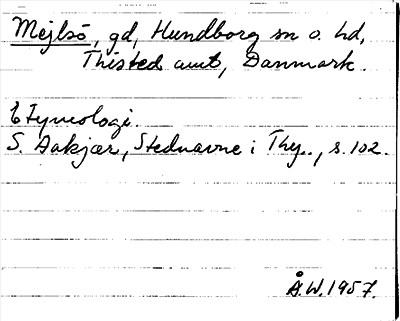 Mejlsö, gd, Hundborg sn o. hd,
Thisted amt, Danmark.
Etymologi.
S. Aakjær, Stednavne i Thy.., s. 102.
Å.W. 1957.